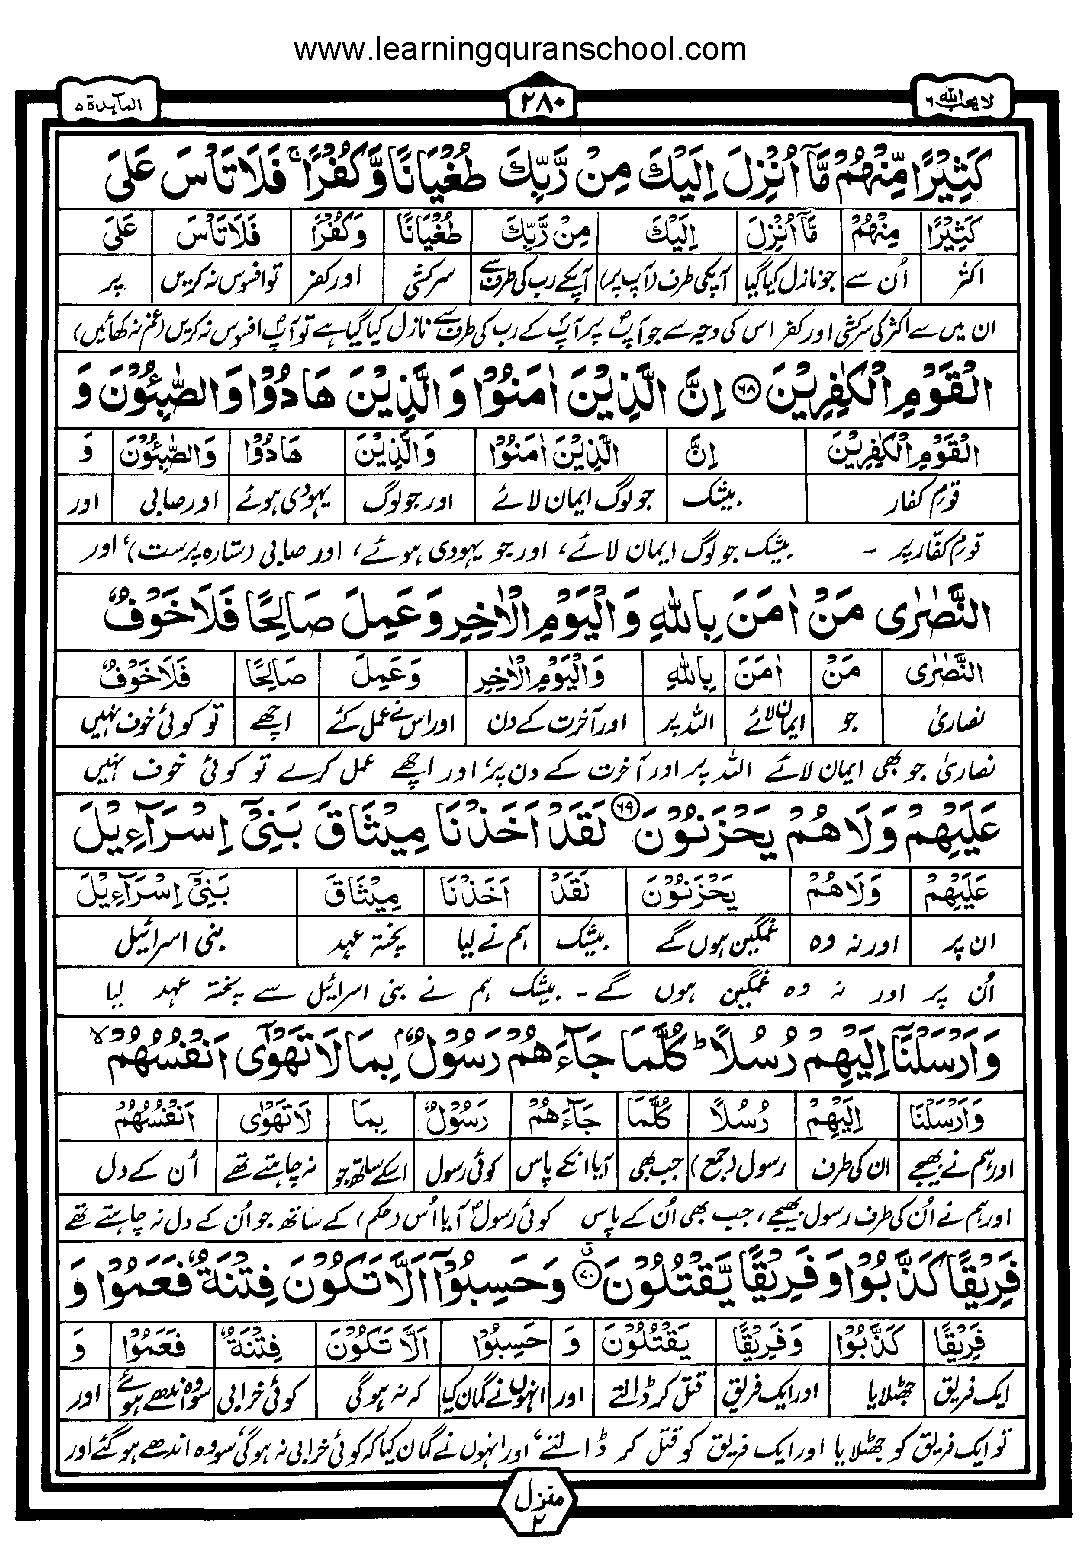 www.learningquranschool.com
لا یحب اللہ ٦ ٢٨٠ المآیدة ٥
كَثِيْرًا مِّنْهُمْ مَّآ اُنْزِلَ اِلَيْكَ مِنْ رَّبِّكَ طُغْيَانًا وَّكُفْرًا ۚ فَلَا تَاْسَ عَلَى
كَثِيْرًا مِنْهُمْ مَّآ اُنْزِلَ اِلَيْكَ مِنْ رَّبِّكَ طُغْيَانًا وَكُفْرًا فَلَا تَاْسَ عَلَى
اکثر اُن سے جو نازل کیا گیا آپکی طرف (آپ پر) آپکے رب کی طرف سے سرکشی اور کفر تو افسوس نہ کریں پر
ان میں سے اکثر کی سرکشی اور کفر اس کی وجہ سے جو آپ پر آپ کے رب کی طرف سے نازل کیا گیا ہے تو آپ افسوس نہ کریں (غم نہ کھائیں)
الْقَوْمِ الْكٰفِرِيْنَ ٦٨ اِنَّ الَّذِيْنَ اٰمَنُوْا وَالَّذِيْنَ هَادُوْا وَالصّٰبِئُوْنَ وَ
الْقَوْمِ الْكٰفِرِيْنَ اِنَّ الَّذِيْنَ اٰمَنُوْا وَالَّذِيْنَ هَادُوْا وَالصّٰبِئُوْنَ وَ
قومِ کفار بیشک جو لوگ ایمان لائے اور جو لوگ یہودی ہوئے اور صابی اور
قومِ کفّار پر ۔ بیشک جو لوگ ایمان لائے، اور جو یہودی ہوئے، اور صابی (ستارہ پرست)، اور
النَّصٰرٰى مَنْ اٰمَنَ بِاللّٰهِ وَالْيَوْمِ الْاٰخِرِ وَعَمِلَ صَالِحًا فَلَا خَوْفٌ
النَّصٰرٰى مَنْ اٰمَنَ بِاللّٰهِ وَالْيَوْمِ الْاٰخِرِ وَعَمِلَ صَالِحًا فَلَا خَوْفٌ
نصاریٰ جو ایمان لائے اللہ پر اور آخرت کے دن اور اس نے عمل کئے اچھے تو کوئی خوف نہیں
نصاریٰ جو بھی ایمان لائے اللہ پر اور آخرت کے دن پر، اور اچھے عمل کرے تو کوئی خوف نہیں
عَلَيْهِمْ وَلَا هُمْ يَحْزَنُوْنَ ٦٩ لَقَدْ اَخَذْنَا مِيْثَاقَ بَنِيْٓ اِسْرَآءِيْلَ
عَلَيْهِمْ وَلَا هُمْ يَحْزَنُوْنَ لَقَدْ اَخَذْنَا مِيْثَاقَ بَنِيْٓ اِسْرَآءِيْلَ
ان پر اور نہ وہ غمگین ہوں گے بیشک ہم نے لیا پختہ عہد بنی اسرائیل
اُن پر اور نہ وہ غمگین ہوں گے ۔ بیشک ہم نے بنی اسرائیل سے پختہ عہد لیا
وَاَرْسَلْنَآ اِلَيْهِمْ رُسُلًا ؕ كُلَّمَا جَآءَهُمْ رَسُوْلٌۢ بِمَا لَا تَهْوٰٓى اَنْفُسُهُمْ ۙ
وَاَرْسَلْنَا اِلَيْهِمْ رُسُلًا كُلَّمَا جَآءَهُمْ رَسُوْلٌ بِمَا لَا تَهْوٰى اَنْفُسُهُمْ
اور ہم نے بھیجے ان کی طرف رسول (جمع) جب بھی آیا انکے پاس کوئی رسول اسکے ساتھ جو نہ چاہتے تھے اُن کے دل
اور ہم نے اُن کی طرف رسول بھیجے، جب بھی اُن کے پاس کوئی رسول آیا اُس (حکم) کے ساتھ جو اُن کے دل نہ چاہتے تھے
فَرِيْقًا كَذَّبُوْا وَفَرِيْقًا يَّقْتُلُوْنَ ٧٠ وَحَسِبُوْٓا اَلَّا تَكُوْنَ فِتْنَةٌ فَعَمُوْا وَ
فَرِيْقًا كَذَّبُوْا وَفَرِيْقًا يَقْتُلُوْنَ وَ حَسِبُوْا اَلَّا تَكُوْنَ فِتْنَةٌ فَعَمُوْا وَ
ایک فریق جھٹلایا اور ایک فریق قتل کر ڈالتے اور انہوں نے گمان کیا کہ نہ ہوگی کوئی خرابی سو وہ اندھے ہوئے اور
تو ایک فریق کو جھٹلایا اور ایک فریق کو قتل کر ڈالتے، اور انہوں نے گمان کیا کہ کوئی خرابی نہ ہوگی، سو وہ اندھے ہو گئے اور
منزل ٢